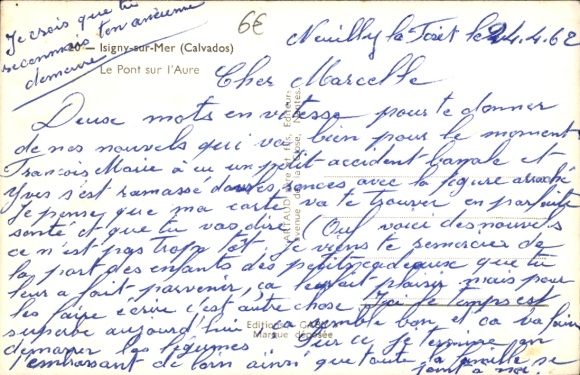 Je crois que tu
reconnais ton ancienne
demeure
6€
20 — Isigny-sur-Mer (Calvados)
Le Pont sur l'Aure
Neuilly la Foret le 24.4.62
Cher Marcelle
Deuse mots en vitesse pour te donner
de nos nouvels qui va bien pour le moment
François Marie à eu un petit accident banale et
Yves s'est ramassé dans les ronces avec la figure arraché
Je pense que ma carte va te trouver en parfaite
santé et que tu vas dire (Ouf voici des nouvels
ce n'est pas trop tôt je viens te remercier de
la part des enfants des petits que tu
leur a fait parvenir, ça leur fait plaisir mais pour
les faire écrire c'est autre chose le temps est
superbe aujourd'hui, ça semble bon et ca va faire
démarrer les légumes. Sur ce je termine en
t'embrassant de loin ainsi que toute la famille se
joint a moi.
ARTAUD Père et Fils, Editeurs
Nantes
Editions GABY
Marque déposée